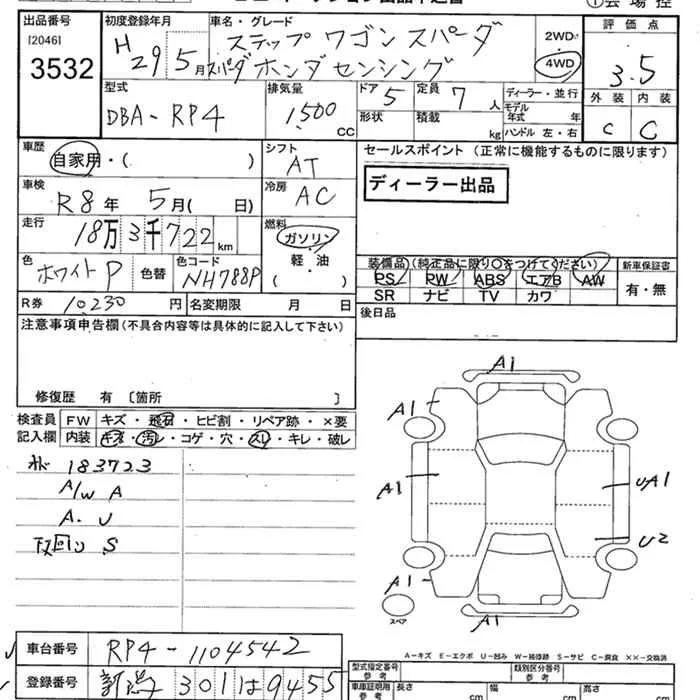 出品番号
[2046]
3532
初度登録年月
H 29年 5月
車名・グレード
ステップワゴンスパーダ
スパーダホンダセンシング
2WD・
4WD
評価点
3.5
外装 内装
C C
型式
DBA-RP4
排気量
1,500 CC
ドア 5
形状
定員 7 人
積載 kg
ディーラー・並行
モデル年式 年
ハンドル 左・右
車歴
自家用・( )
シフト
AT
セールスポイント (正常に機能するものに限ります)
ディーラー出品
車検
R8年 5月( 日)
冷房
AC
走行
18万3千722km
燃料
ガソリン
軽・油
( )
色
ホワイトP
色替
色コード
NH788P
装備品(純正品に限り○をつけてください)
PS RW ABS エアB AW
SR ナビ TV カワ
新車保証書
有・無
R券 10,230 円
名変期限 月 日
後日品
注意事項申告欄(不具合内容等は具体的に記入して下さい)
修復歴 有 [箇所 ]
検査員
記入欄
FW キズ・飛石・ヒビ割・リペア跡・×要
内装 キズ・汚レ・コゲ・穴・スレ・キレ・破レ
183723
A/W A
A.U
下回り S
A1
A1
A1
UA1
U2
A1
A1
スペア
A-キズ E-エクボ U-凹み W-補修跡 S-サビ C-腐食 ××-交換済
車台番号
RP4-1104542
登録番号
新潟 301 は 9455
型式指定番号
参考
類別区分番号
参考
車庫証明用
参考
長さ cm
幅 cm
高さ cm